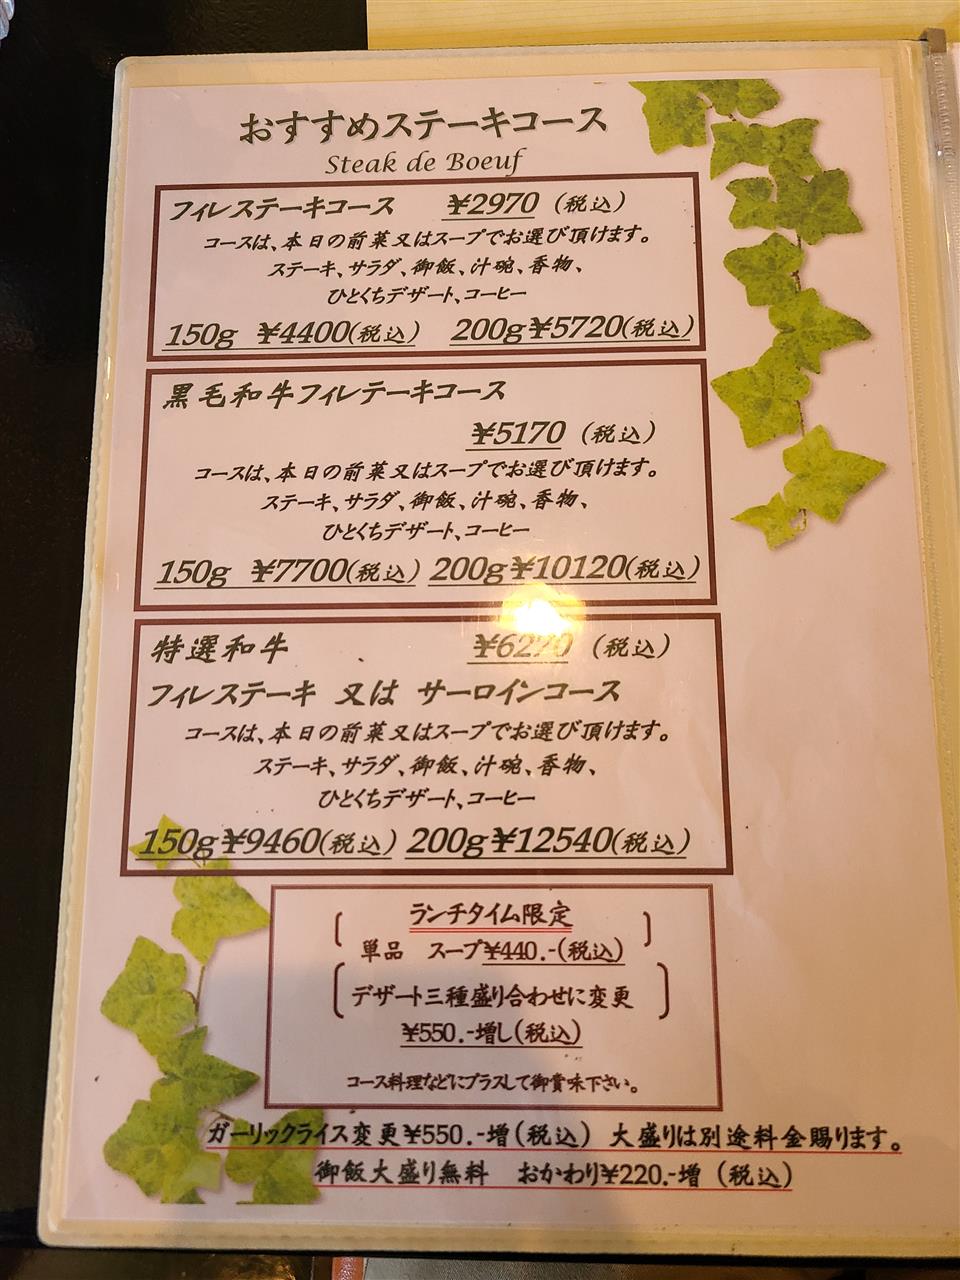 おすすめステーキコース
Steak de Boeuf
フィレステーキコース ¥2970 (税込)
コースは、本日の前菜又はスープでお選び頂けます。
ステーキ、サラダ、御飯、汁碗、香物、
ひとくちデザート、コーヒー
150g ¥4400(税込) 200g¥5720(税込)
黒毛和牛フィレテーキコース
¥5170 (税込)
コースは、本日の前菜又はスープでお選び頂けます。
ステーキ、サラダ、御飯、汁碗、香物、
ひとくちデザート、コーヒー
150g ¥7700(税込) 200g¥10120(税込)
特選和牛 ¥6270 (税込)
フィレステーキ 又は サーロインコース
コースは、本日の前菜又はスープでお選び頂けます。
ステーキ、サラダ、御飯、汁碗、香物、
ひとくちデザート、コーヒー
150g¥9460(税込) 200g¥12540(税込)
ランチタイム限定
単品 スープ¥440.-(税込)
デザート三種盛り合わせに変更
¥550.-増し(税込)
コース料理などにプラスして御賞味下さい。
ガーリックライス変更¥550.-増(税込) 大盛りは別途料金賜ります。
御飯大盛り無料 おかわり¥220.-増 (税込)